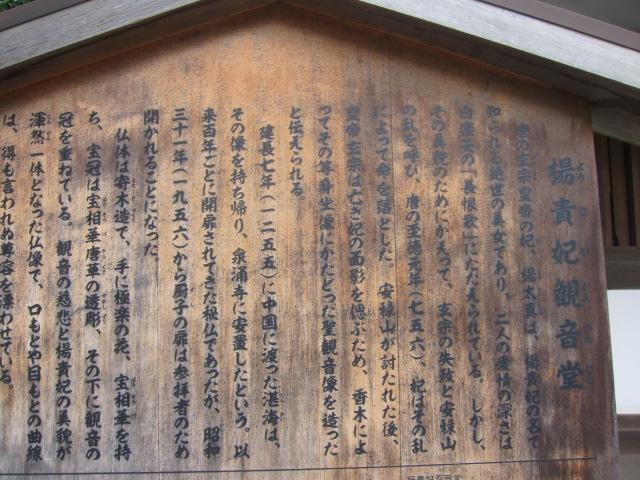 楊貴妃観音堂
唐の玄宗皇帝の妃、楊太真は、楊貴妃の名で
知られる絶世の美女であり、二人の愛情の深さは
白楽天の「長恨歌」にたたえられている。しかし、
その美貌のためにかえって、玄宗の失政と安禄山
の乱を呼び、唐の至徳元年（七五六）、妃はその乱
によって命を落とした。安禄山が討たれた後、
皇帝玄宗は亡き妃の面影を偲ぶため、香木によ
ってその等身坐像にかたどった聖観音像を造った
と伝えられる。
建長七年（一二五五）に中国に渡った湛海は、
その像を持ち帰り、泉涌寺に安置したという。以
来百年ごとに開扉されてきた秘仏であったが、昭和
三十一年（一九五六）から厨子の扉は参拝者のため
開かれることになった。
仏体は寄木造で、手に極楽の花、宝相華を持
ち、宝冠は宝相華唐草の透彫、その下に観音の
冠を重ねている。観音の慈悲と楊貴妃の美貌が
渾然一体となった仏像で、口もとや目もとの曲線
は、得も言われぬ尊容を漂わせている。